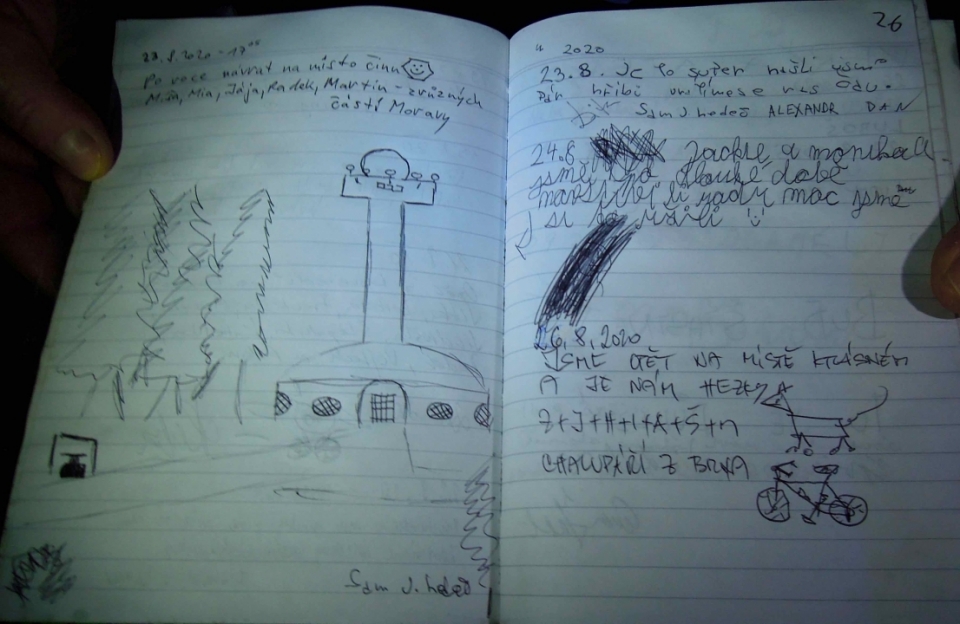 23.8.2020 - 17⁰⁵
Po roce návrat na místo činu
Míša, Mia, Jája, Radek, Martin - z různých
částí Moravy
Sam J.
26
2020
23.8. Je to super našli jsme
pár hřibů
Sam J. ALEXANDR DAN
24.8 Jackie a monika
jsme po dlouhé době
moc jsme
si to užili
26.8.2020
JSME OPĚT NA MÍSTĚ KRÁSNÉM
A JE NÁM HEZKY
Z+J+H+I+A+Š+n
CHALUPÁŘI Z BRNA